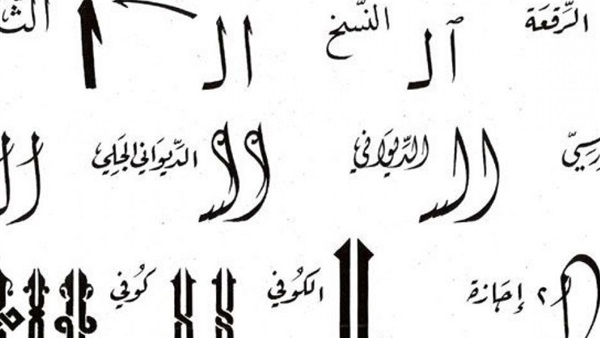 الرّقعَة ال النّسْخ ال ا
ال الدّيوَاني ال الدّيوَاني الجَلي ال
٢ إجَازة ا الكُوفي ال كُوفي